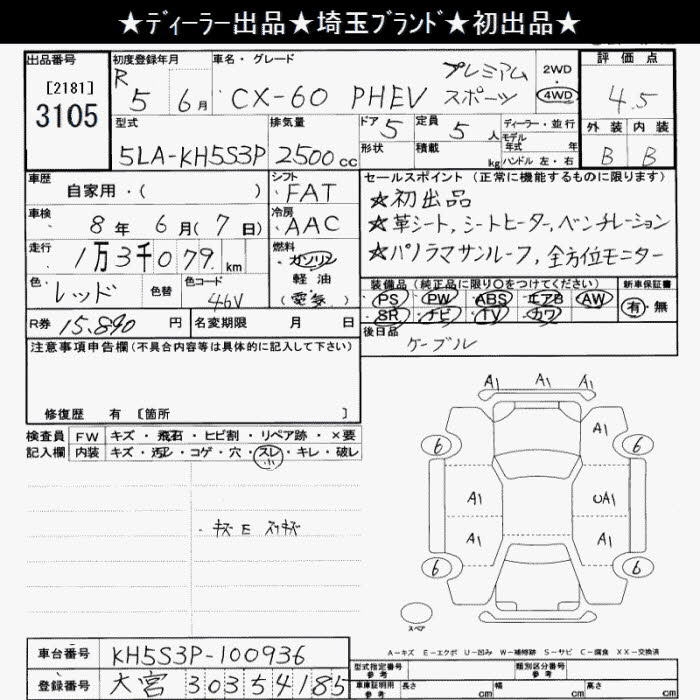 ★ディーラー出品★埼玉ブランド★初出品★
出品番号
[2181]
3105
初度登録年月
R 5 6月
車名・グレード
CX-60 PHEV プレミアム スポーツ
2WD
4WD
評価点
4.5
外装 内装
B B
型式
5LA-KH5S3P
排気量
2500cc
ドア 5
形状
定員 5人
積載 kg
ディーラー・並行
モデル年式 年
ハンドル 左・右
車歴
自家用・( )
車検
8年 6月(7日)
走行
1万3千079km
色
レッド
色替
色コード
46V
シフト
FAT
冷房
AAC
燃料
ガソリン
軽油
(電気)
セールスポイント(正常に機能するものに限ります)
★初出品
★革シート,シートヒーター,ベンチレーション
★パノラマサンルーフ,全方位モニター
装備品(純正品に限り〇をつけてください)
PS・PW・ABS・エアB・AW
SR・ナビ・TV・カワ
新車保証書
有・無
R券 15.890円
名変期限 月 日
後日品
ケーブル
注意事項申告欄(不具合内容等は具体的に記入して下さい)
修復歴 有[箇所 ]
検査員記入欄
FW キズ・飛石・ヒビ割・リペア跡・×要
内装 キズ・汚レ・コゲ・穴・スレ・キレ・破レ
小
A1 A1 A1
A1
6 6
A1 UA1
A1 A1
6 6
スペア
A-キズ E-エクボ U-凹み W-補修跡 S-サビ C-腐食 XX-交換済
車台番号 KH5S3P-100936
登録番号 大宮 303 5 4185
型式指定番号 参考
類別区分番号 参考
車庫証明用 参考 長さ cm 幅 cm 高さ cm